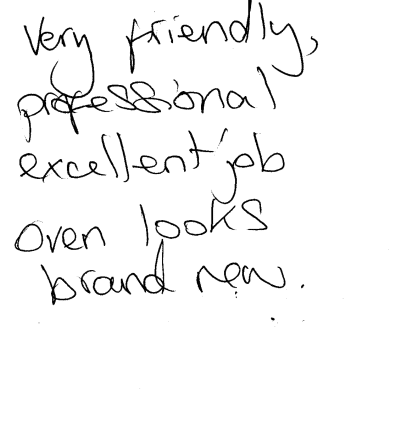 Very friendly,
professional
excellent job
oven looks
brand new.